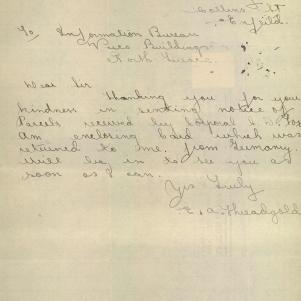 Collins St
Enfeild.
To Information Bureau
Pirie Buildings
Dear Sir
Thanking you for your
kindness in sending notice of
Parcels received by Corporal
Am enclosing Card which was
returned to me. from Germany.
Will be in to see you as
soon as I can.
Yrs Truly
E. A. Threadgold